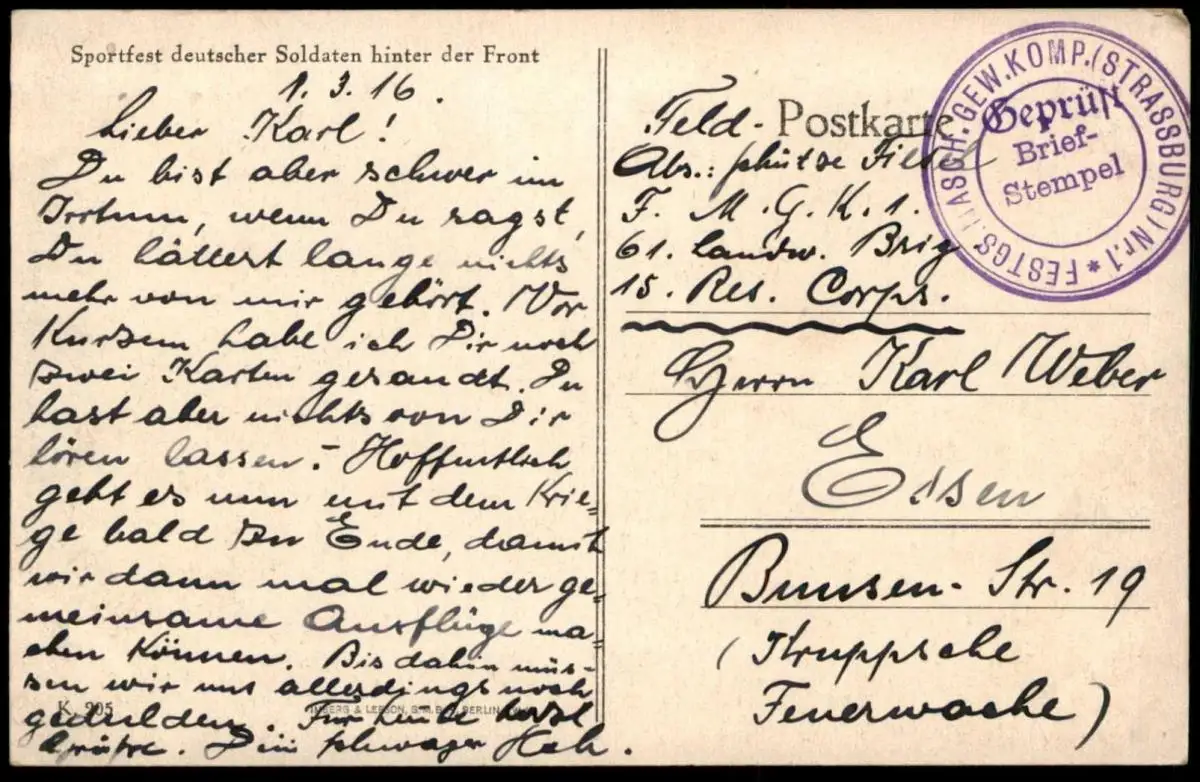 Sportfest deutscher Soldaten hinter der Front
1. 3. 16.
Lieber Karl!
Du bist aber schwer im
Irrtum, wenn Du sagst,
Du hättest lange nichts
mehr von mir gehört. Vor
Kurzem habe ich Dir noch
zwei Karten gesandt. Du
hast aber nichts von Dir
hören lassen. - Hoffentlich
geht es nun mit dem Krie=
ge bald zu Ende, damit
wir dann mal wieder ge=
meinsame Ausflüge ma-
chen können. Bis dahin müs=
sen wir uns allerdings noch
gedulden. Für heute herzl
Grüsse. Dein Schwager
K. 205
Feld- Postkarte
Abs.: Schütze
F. M. G. K. 1.
61. Landw. Brig
15. Res. Corps.
Herrn Karl Weber
Essen
Bunsen-Str. 19
(Kruppsche
Feuerwache)
FESTGS. MASCH. GEW. KOMP. (STRASSBURG) Nr. 1 *
Geprüft
Brief-
Stempel